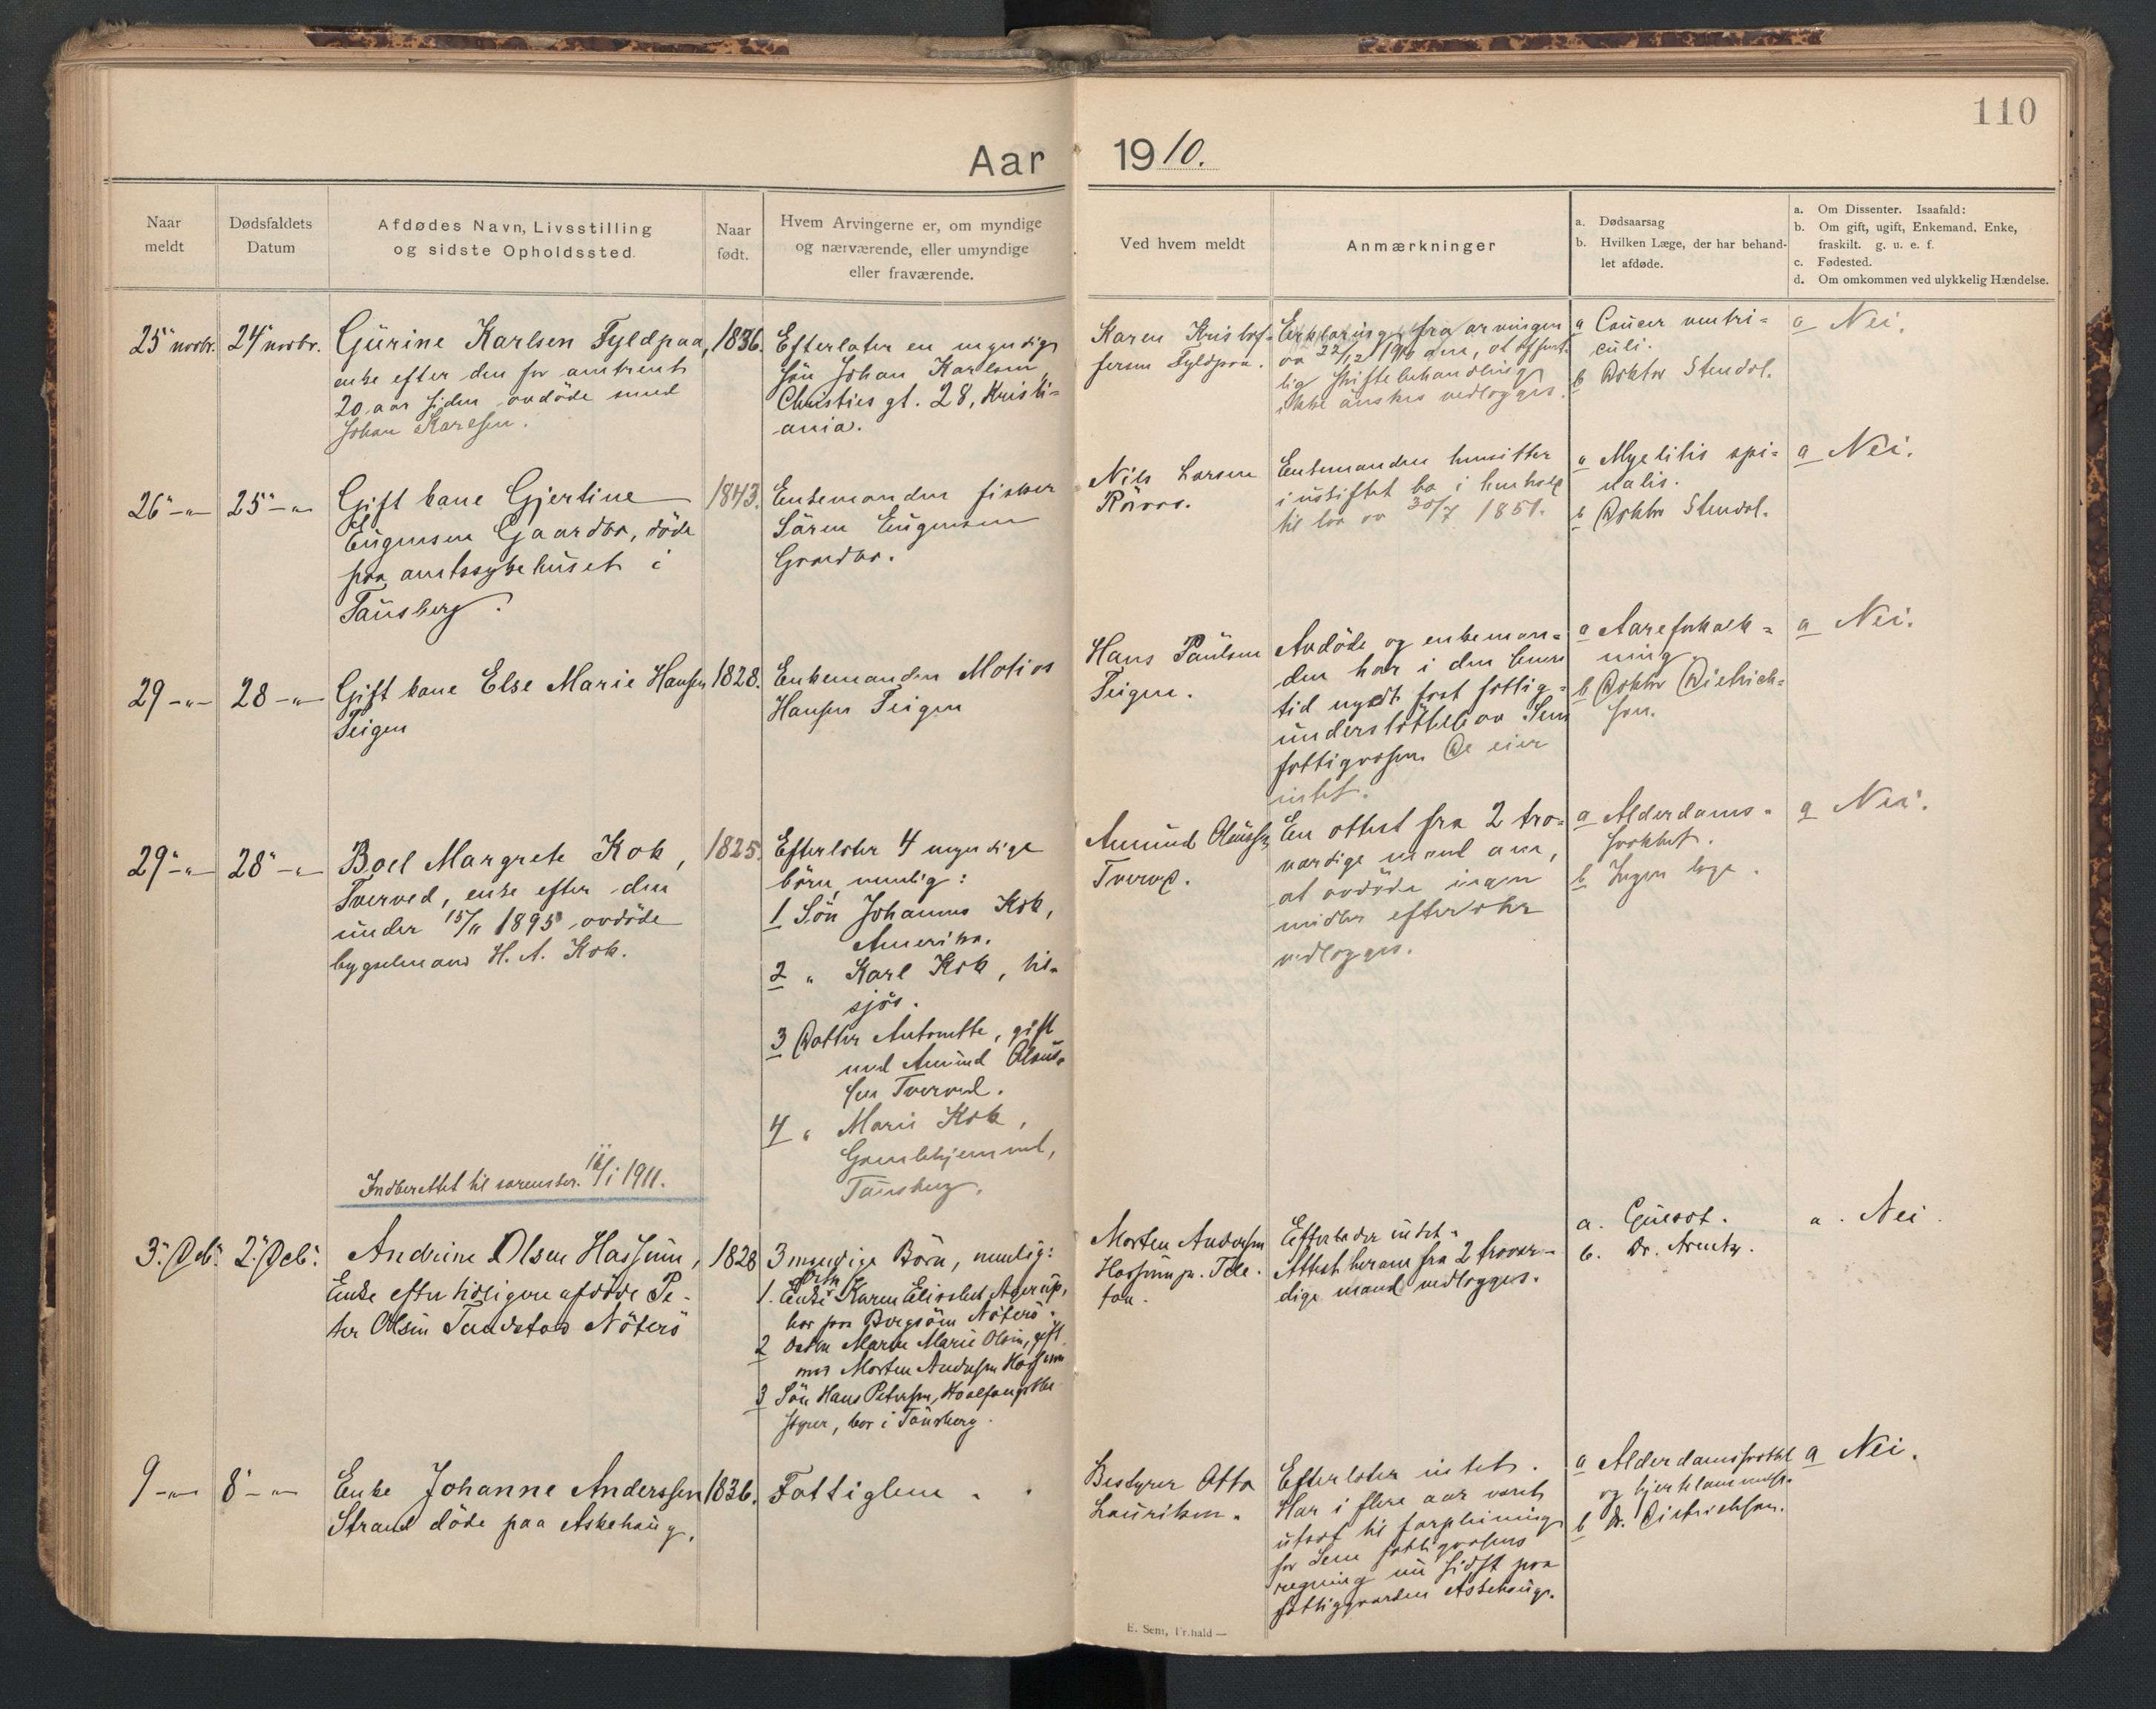 110
Aar 1910.
Naar meldt
Dødsfaldets Datum
Afdødes Navn, Livsstilling og sidste Opholdssted.
Naar født.
Hvem Arvingerne er, om myndige og nærværende, eller umyndige eller fraværende.
Ved hvem meldt
Anmærkninger
a. Dødsaarsag
b. Hvilken Læge, der har behandlet afdøde.
a. Om Dissenter. Isaafald:
b. Om gift, ugift, Enkemand, Enke, fraskilt. g. u. e. f.
c. Fødested.
d. Om omkommen ved ulykkelig Hændelse.
25 novbr. 24 novbr.
Gurine Karlsen Fyldpaa,
enke efter den for omtrent
20 aar siden avdöde mand
Johan Karlsen.
1836.
Efterlater en myndig
sön Johan Karlsen,
Christies gt. 28, Kristi-
ania.
Karen Kristof-
fersen Fyldpaa.
Erklæring fra arvingen
av 22/12 1910 om, at offent-
lig skiftebehandling
ikke önskes vedlægges.
a Cancer ventri-
culi.
b Doktor Stendal.
a Nei.
26 -"- 25 -"-
Gift kone Gjertine
Eugensen Gaardbo, döde
paa amtssykehuset i
Tönsberg.
1843.
Enkemanden fisker
Sören Eugensen
Gaardbo.
Nils Larsen
Röraas.
Enkemanden hensitter
i uskiftet bo i henhold
til lov av 30/7 1851.
a Myelitis spi-
nalis.
b Doktor Stendal.
a Nei.
29 -"- 28 -"-
Gift kone Else Marie Hansen
Teigen
1828.
Enkemanden Matias
Hansen Teigen
Hans Paulsen
Teigen.
Avdöde og enkeman-
den har i den senere
tid nydt fast fattig-
understöttelse av Sem
fattigvæsen. De eier
intet.
a Aareforkalk-
ning.
b Doktor Dietrich-
son.
a Nei.
29 -"- 28 -"-
Boel Margrete Kok,
Tverved, enke efter den
under 15/11 1895 avdöde
bygselmand H. A. Kok.
1825.
Efterlater 4 myndige
börn, nemlig:
1 Sön Johannes Kok,
Amerika.
2 " Karl Kok, til-
sjös.
3 Datter Antonette, gift
med Amund Olaus-
sen Tverved.
4 " Marie Kok,
Gamlehjemmet,
Tönsberg.
Amund Olaussen
Tverved.
En attest fra 2 tro-
værdige mænd om,
at avdöde ingen
midler efterlater
vedlægges.
a Alderdoms-
svakhet.
b Ingen læge.
a Nei.
Indberettet til sorenskr. 14/1 1911.
3. Decb. 2. Decb.
Andrine Olsen Hassum,
Enke efter tidligere afdöde Pe-
ter Olsen Nöterö
1828
3 myndige Börn, nemlig:
1. Datter Enke Karen Elisabet Agerup,
bor paa Nöterö.
2 Datter Maren Marie Olsen, gift
med Morten Andersen Hassum
3 Sön Hans Petersen, Hvalfangstbe
styrer, bor i Tönsberg.
Morten Andersen
Hassum pr. Tele-
fon.
Efterlader intet.
Attest herom fra 2 trovær-
dige mænd vedlægges.
a.
b. Dr. Arentz.
a. Nei.
9 -"- 8 -"-
Enke Johanne Anderssen
Strand döde paa Askehaug.
1836.
Fattiglem.
Bestyrer Otto
Lauritsen.
Efterlater intet.
Har i flere aar været
utsat til forpleining
for Sem fattigvæsens
regning nu sidst paa
fattiggaarden Askehaug.
a Alderdomssvakhet
og hjertelammelse.
b Dr. Dietrichson.
a Nei.
E. Sem, Fr.hald —